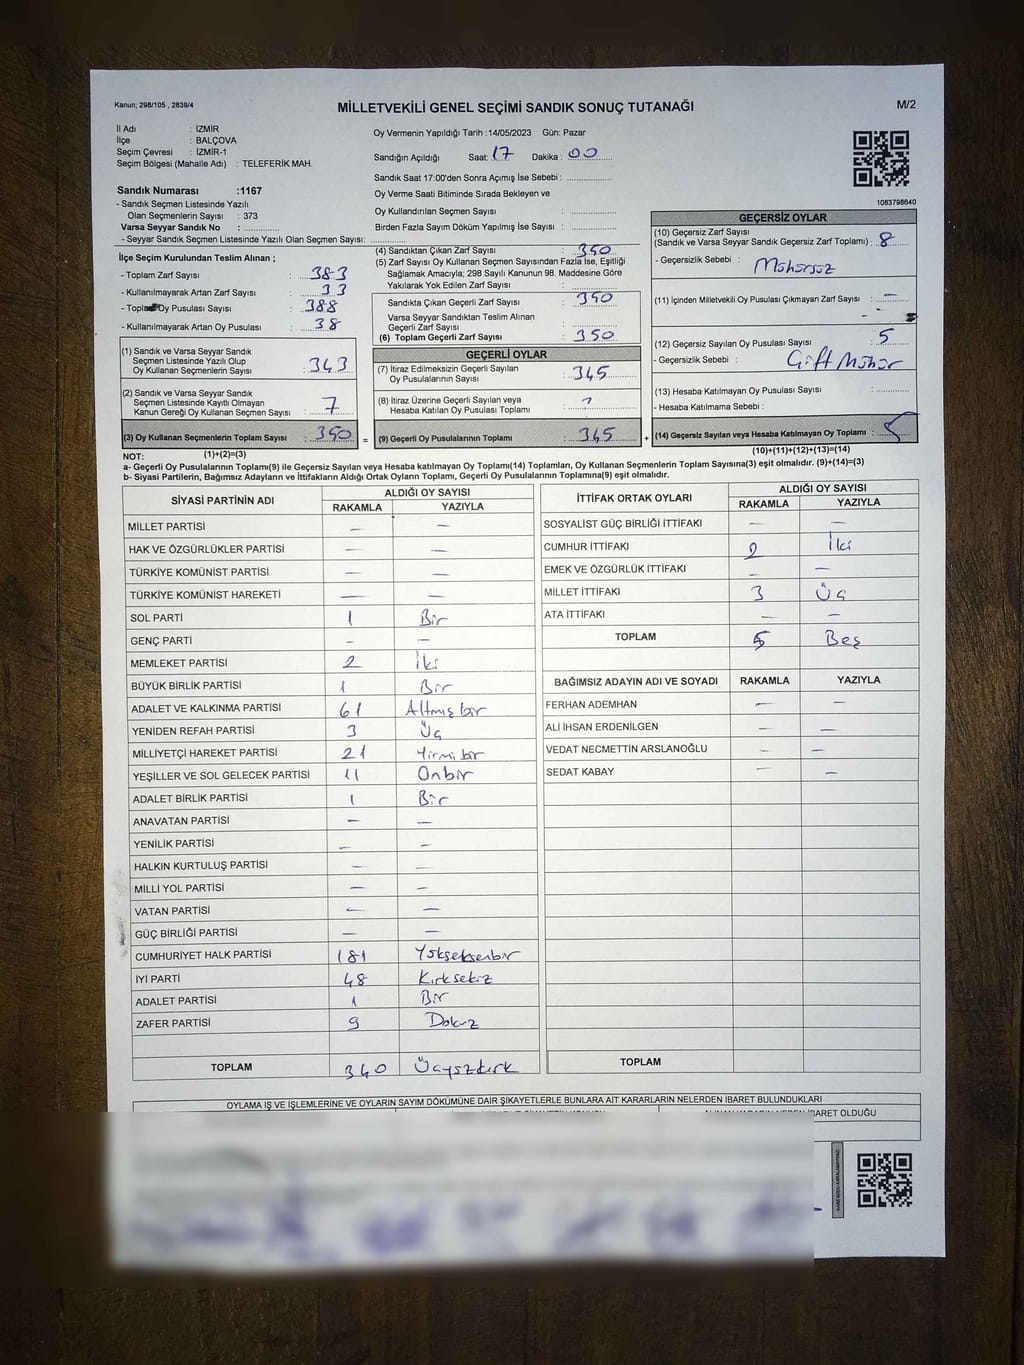 Kanun; 298/105 , 2839/4
MİLLETVEKİLİ GENEL SEÇİMİ SANDIK SONUÇ TUTANAĞI
M/2
İl Adı : İZMİR
İlçe : BALÇOVA
Seçim Çevresi : İZMİR-1
Seçim Bölgesi (Mahalle Adı) : TELEFERİK MAH.
Sandık Numarası :1167
- Sandık Seçmen Listesinde Yazılı
Olan Seçmenlerin Sayısı : 373
Varsa Seyyar Sandık No :
- Seyyar Sandık Seçmen Listesinde Yazılı Olan Seçmen Sayısı:
Oy Vermenin Yapıldığı Tarih :14/05/2023 Gün: Pazar
Sandığın Açıldığı Saat: 17 Dakika : 00
Sandık Saat 17:00'den Sonra Açımış İse Sebebi :
Oy Verme Saati Bitiminde Sırada Bekleyen ve
Oy Kullandırılan Seçmen Sayısı :
Birden Fazla Sayım Döküm Yapılmış İse Sayısı :
1083798640
İlçe Seçim Kurulundan Teslim Alınan ;
- Toplam Zarf Sayısı : 383
- Kullanılmayarak Artan Zarf Sayısı : 33
- Toplam Oy Pusulası Sayısı : 388
- Kullanılmayarak Artan Oy Pusulası : 38
(1) Sandık ve Varsa Seyyar Sandık
Seçmen Listesinde Yazılı Olup
Oy Kullanan Seçmenlerin Sayısı : 343
(2) Sandık ve Varsa Seyyar Sandık
Seçmen Listesinde Kayıtlı Olmayan
Kanun Gereği Oy Kullanan Seçmen Sayısı : 7
(3) Oy Kullanan Seçmenlerin Toplam Sayısı : 350 =
(4) Sandıktan Çıkan Zarf Sayısı : 350
(5) Zarf Sayısı Oy Kullanan Seçmen Sayısından Fazla İse, Eşitliği
Sağlamak Amacıyla; 298 Sayılı Kanunun 98. Maddesine Göre
Yakılarak Yok Edilen Zarf Sayısı :
Sandıkta Çıkan Geçerli Zarf Sayısı : 350
Varsa Seyyar Sandıktan Teslim Alınan
Geçerli Zarf Sayısı :
(6) Toplam Geçerli Zarf Sayısı : 350
GEÇERLİ OYLAR
(7) İtiraz Edilmeksizin Geçerli Sayılan
Oy Pusulalarının Sayısı : 345
(8) İtiraz Üzerine Geçerli Sayılan veya
Hesaba Katılan Oy Pusulası Toplamı :
(9) Geçerli Oy Pusulalarının Toplamı : 345 +
GEÇERSİZ OYLAR
(10) Geçersiz Zarf Sayısı
(Sandık ve Varsa Seyyar Sandık Geçersiz Zarf Toplamı) : 8
- Geçersizlik Sebebi : Mühürsüz
(11) İçinden Milletvekili Oy Pusulası Çıkmayan Zarf Sayısı : —
(12) Geçersiz Sayılan Oy Pusulası Sayısı : 5
- Geçersizlik Sebebi : Çift Mühür
(13) Hesaba Katılmayan Oy Pusulası Sayısı :
- Hesaba Katılmama Sebebi :
(14) Geçersiz Sayılan veya Hesaba Katılmayan Oy Toplamı : 5
NOT: (1)+(2)=(3) (10)+(11)+(12)+(13)=(14)
a- Geçerli Oy Pusulalarının Toplamı(9) ile Geçersiz Sayılan veya Hesaba katılmayan Oy Toplamı(14) Toplamları, Oy Kullanan Seçmenlerin Toplam Sayısına(3) eşit olmalıdır. (9)+(14)=(3)
b- Siyasi Partilerin, Bağımsız Adayların ve İttifakların Aldığı Ortak Oyların Toplamı, Geçerli Oy Pusulalarının Toplamına(9) eşit olmalıdır.
SİYASİ PARTİNİN ADI ALDIĞI OY SAYISI
RAKAMLA YAZIYLA
MİLLET PARTİSİ — —
HAK VE ÖZGÜRLÜKLER PARTİSİ — —
TÜRKİYE KOMÜNİST PARTİSİ — —
TÜRKİYE KOMÜNİST HAREKETİ — —
SOL PARTİ 1 Bir
GENÇ PARTİ — —
MEMLEKET PARTİSİ 2 İki
BÜYÜK BİRLİK PARTİSİ 1 Bir
ADALET VE KALKINMA PARTİSİ 61 Altmış bir
YENİDEN REFAH PARTİSİ 3 Üç
MİLLİYETÇİ HAREKET PARTİSİ 21 Yirmi bir
YEŞİLLER VE SOL GELECEK PARTİSİ 11 Onbir
ADALET BİRLİK PARTİSİ 1 Bir
ANAVATAN PARTİSİ — —
YENİLİK PARTİSİ — —
HALKIN KURTULUŞ PARTİSİ — —
MİLLİ YOL PARTİSİ — —
VATAN PARTİSİ — —
GÜÇ BİRLİĞİ PARTİSİ — —
CUMHURİYET HALK PARTİSİ 181 Yüzseksenbir
İYİ PARTİ 48 Kırksekiz
ADALET PARTİSİ 1 Bir
ZAFER PARTİSİ 9 Dokuz
TOPLAM 340 Üçyüzkırk
İTTİFAK ORTAK OYLARI ALDIĞI OY SAYISI
RAKAMLA YAZIYLA
SOSYALİST GÜÇ BİRLİĞİ İTTİFAKI — —
CUMHUR İTTİFAKI 2 İki
EMEK VE ÖZGÜRLÜK İTTİFAKI — —
MİLLET İTTİFAKI 3 Üç
ATA İTTİFAKI — —
TOPLAM 5 Beş
BAĞIMSIZ ADAYIN ADI VE SOYADI RAKAMLA YAZIYLA
FERHAN ADEMHAN — —
ALİ İHSAN ERDENİLGEN — —
VEDAT NECMETTİN ARSLANOĞLU — —
SEDAT KABAY — —
TOPLAM
OYLAMA İŞ VE İŞLEMLERİNE VE OYLARIN SAYIM DÖKÜMÜNE DAİR ŞİKAYETLERLE BUNLARA AİT KARARLARIN NELERDEN İBARET BULUNDUKLARI
İBARET OLDUĞU
KARE KODU KARALAMAYINIZ!